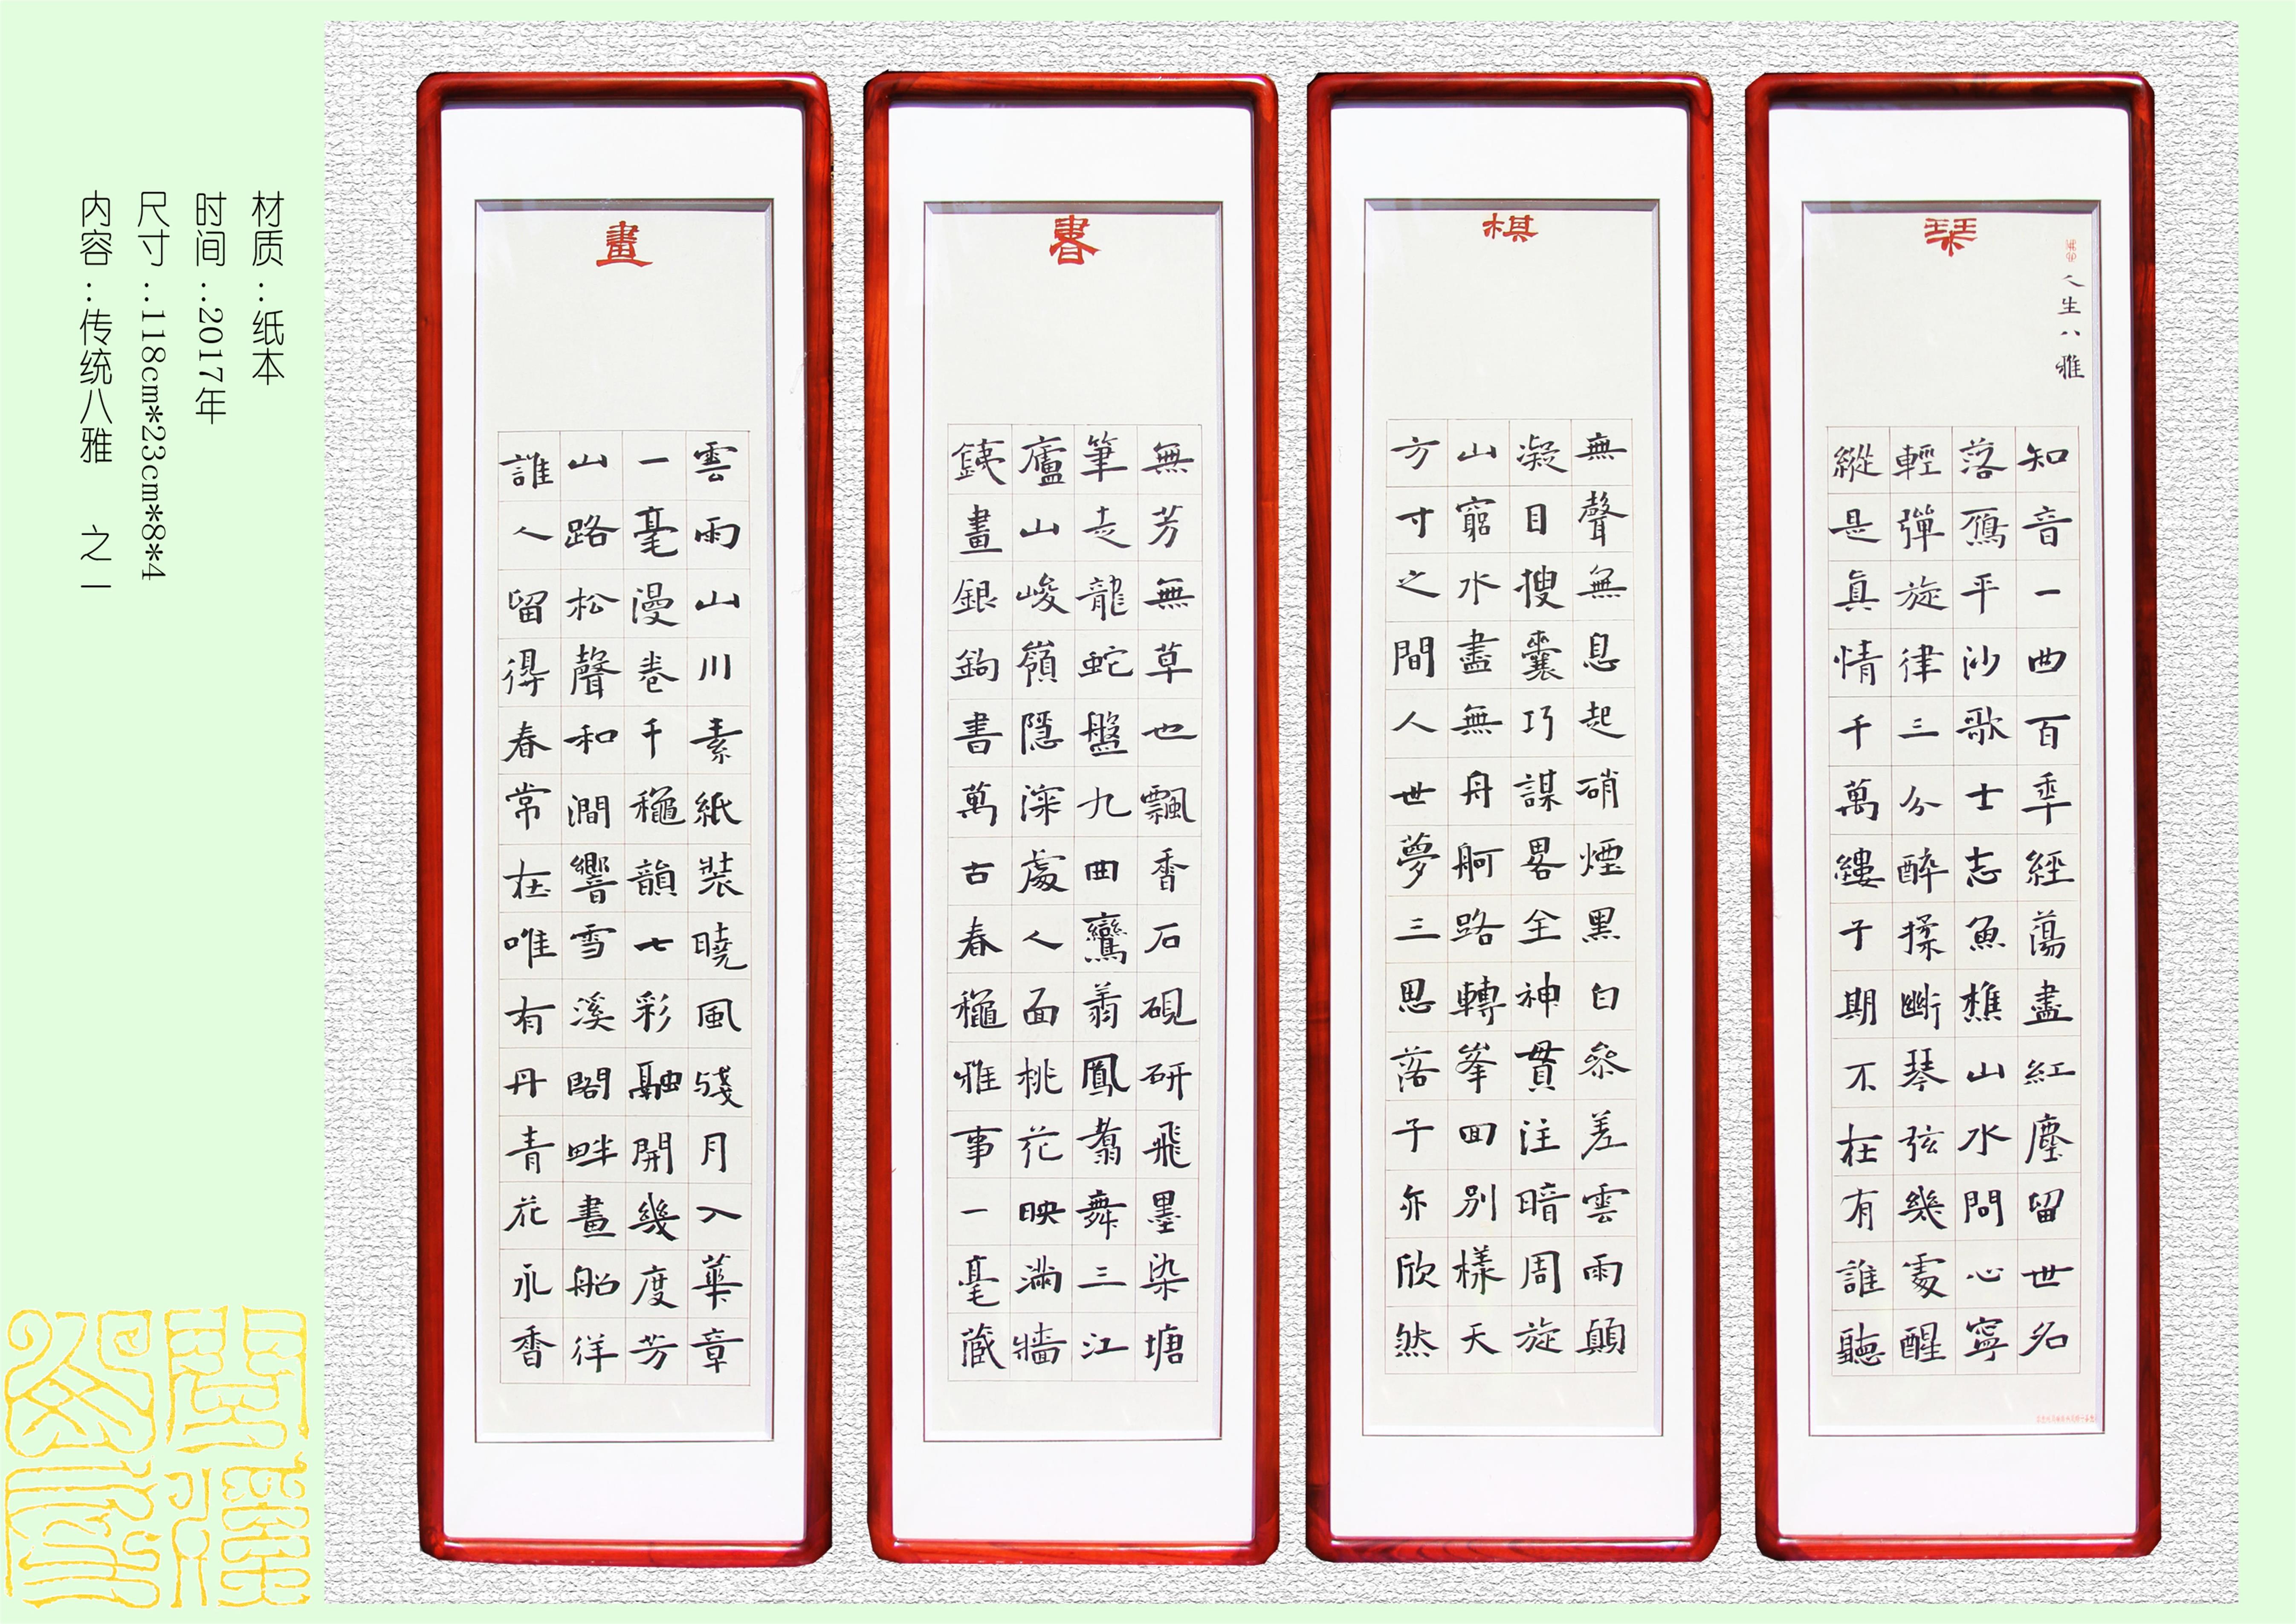 琹
人生八雅
知音一曲百秊經蕩盡紅塵留世名
落鴈平沙歌士志魚樵山水問心寧
輕彈旋律三分醉揉斷琴弦幾處醒
縱是真情千萬縷子期不在有誰聽
棋
無聲無息起硝煙黑白參差雲雨顛
凝目搜囊巧謀畧全神貫注暗周旋
山窮水盡無舟舸路轉峯回別樣天
方寸之間人世夢三思落子亦欣然
書
無芳無草也飄香石硯研飛墨染塘
筆走龍蛇盤九曲鸞翔鳳翥舞三江
廬山峻嶺隱深處人面桃花映滿牆
銕畫銀鉤書萬古春龝雅事一毫藏
畫
雲雨山川素紙裝曉風殘月入華章
一毫漫卷千龝韻七彩融開幾度芳
山路松聲和澗響雪溪閣畔畫船徉
誰人留得春常在唯有丹青花永香
材质：纸本
时间：2017年
尺寸：118cm*23cm*8*4
内容：传统八雅 之一